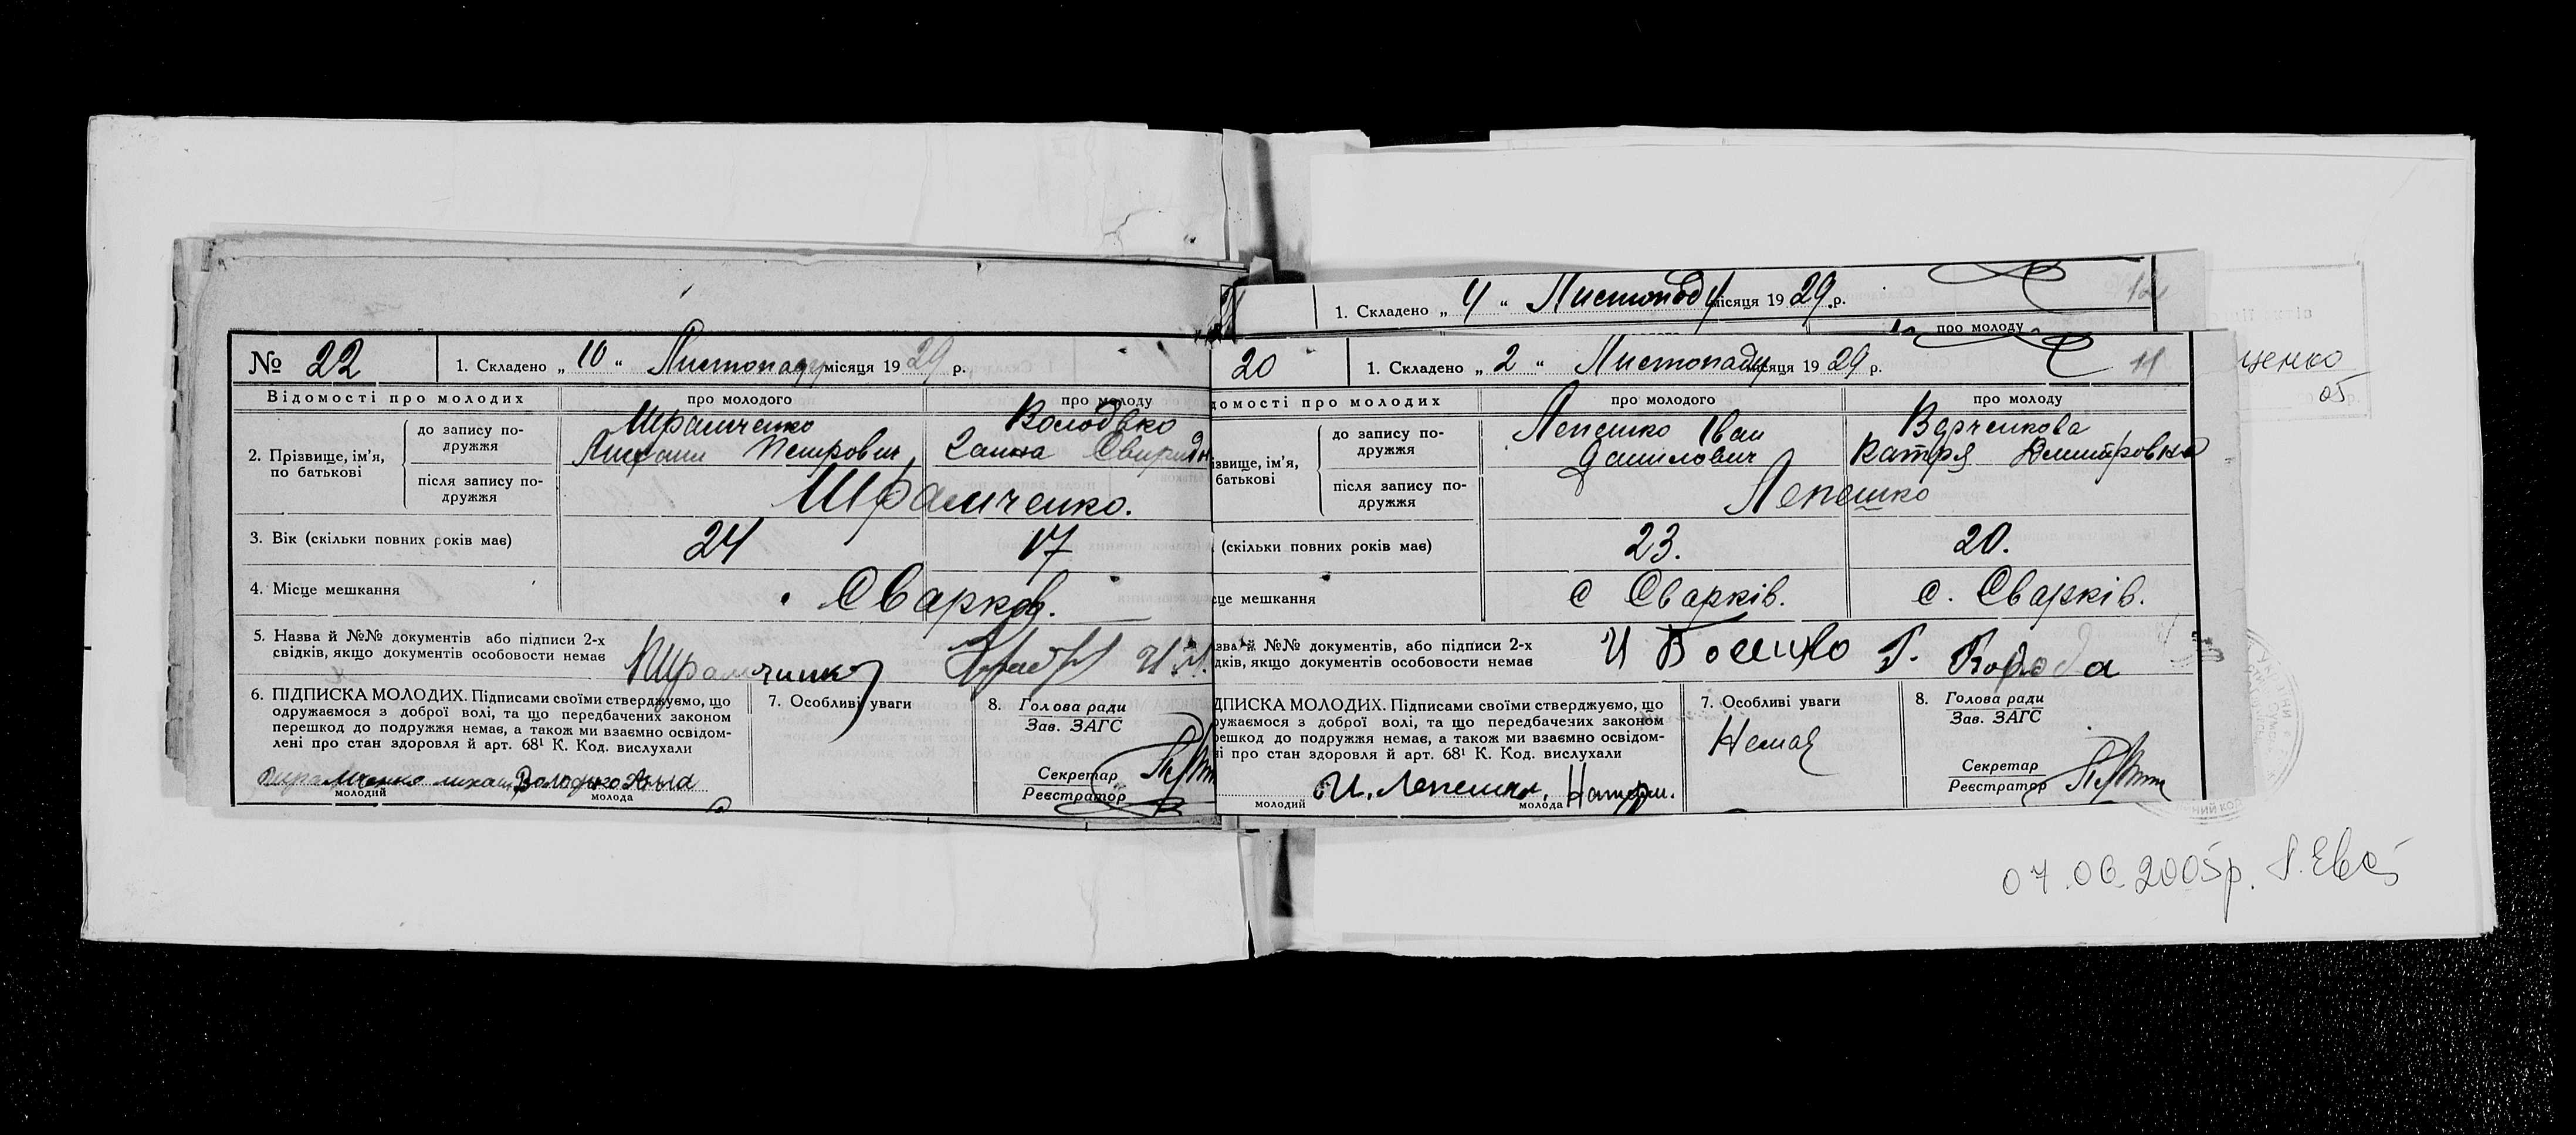 № 22
1. Складено „ 10 “ Листопаду місяця 1929 р.
Відомості про молодих
про молодого
про молоду
2. Прізвище, ім'я, по батькові
до запису по-
дружжя
Шрамченко
Петрович
Володько
Ганна
після запису по-
дружжя
Шрамченко.
3. Вік (скільки повних років має)
24
17
4. Місце мешкання
Сварков.
5. Назва й №№ документів або підписи 2-х
свідків, якщо документів особовости немає
6. ПІДПИСКА МОЛОДИХ. Підписами своїми стверджуємо, що
одружаємося з доброї волі, та що передбачених законом
перешкод до подружжя немає, а також ми взаємно освідом-
лені про стан здоровля й арт. 68¹ К. Код. вислухали
Володько
молодий
молода
7. Особливі уваги
8. Голова ради
Зав. ЗАГС
Секретар
Реєстратор
1. Складено „ 4 “ Листопаду місяця 1929 р.
про молоду
20
1. Складено „ 2 “ Листопаду місяця 1929 р.
11
домості про молодих
про молодого
про молоду
ізвище, ім'я,
батькові
до запису по-
дружжя
Лепешко Іван
Данилович
Катря Дмитровна
після запису по-
дружжя
Лепешко
(скільки повних років має)
23.
20.
сце мешкання
с Сварків.
с. Сварків.
зва й №№ документів, або підписи 2-х
дків, якщо документів особовости немає
ДПИСКА МОЛОДИХ. Підписами своїми стверджуємо, що
ружаємося з доброї волі, та що передбачених законом
решкод до подружжя немає, а також ми взаємно освідом-
ні про стан здоровля й арт. 68¹ К. Код. вислухали
молодий
молода
7. Особливі уваги
Немає
8. Голова ради
Зав. ЗАГС
Секретар
Реєстратор
щенко
05
07.06.2005р.